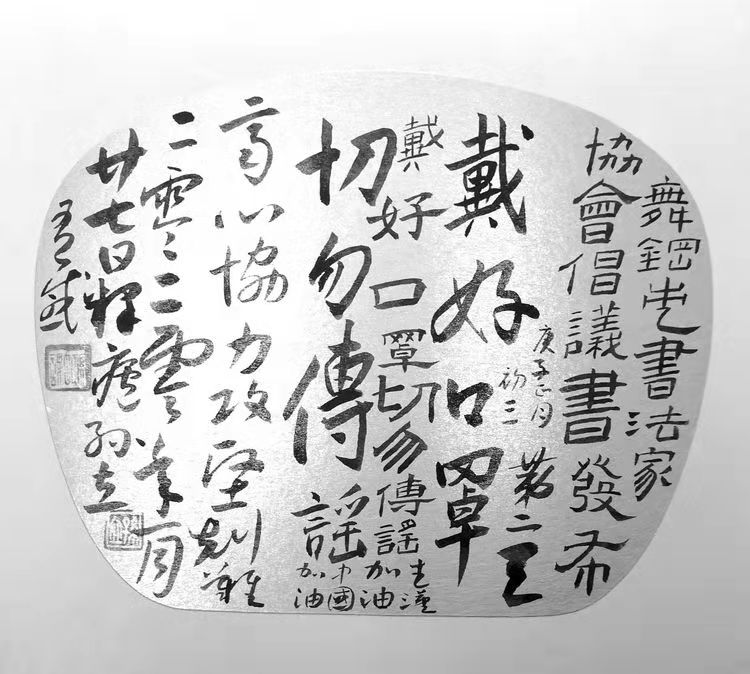 舞鋼市書法家
協會倡議書發布
庚子正月
初三
戴好口罩
戴好口罩切勿傳謠
武漢
加油
切勿傳謠
中國
加油
齊心協力攻堅剋難
二零二零年一月
廿七日